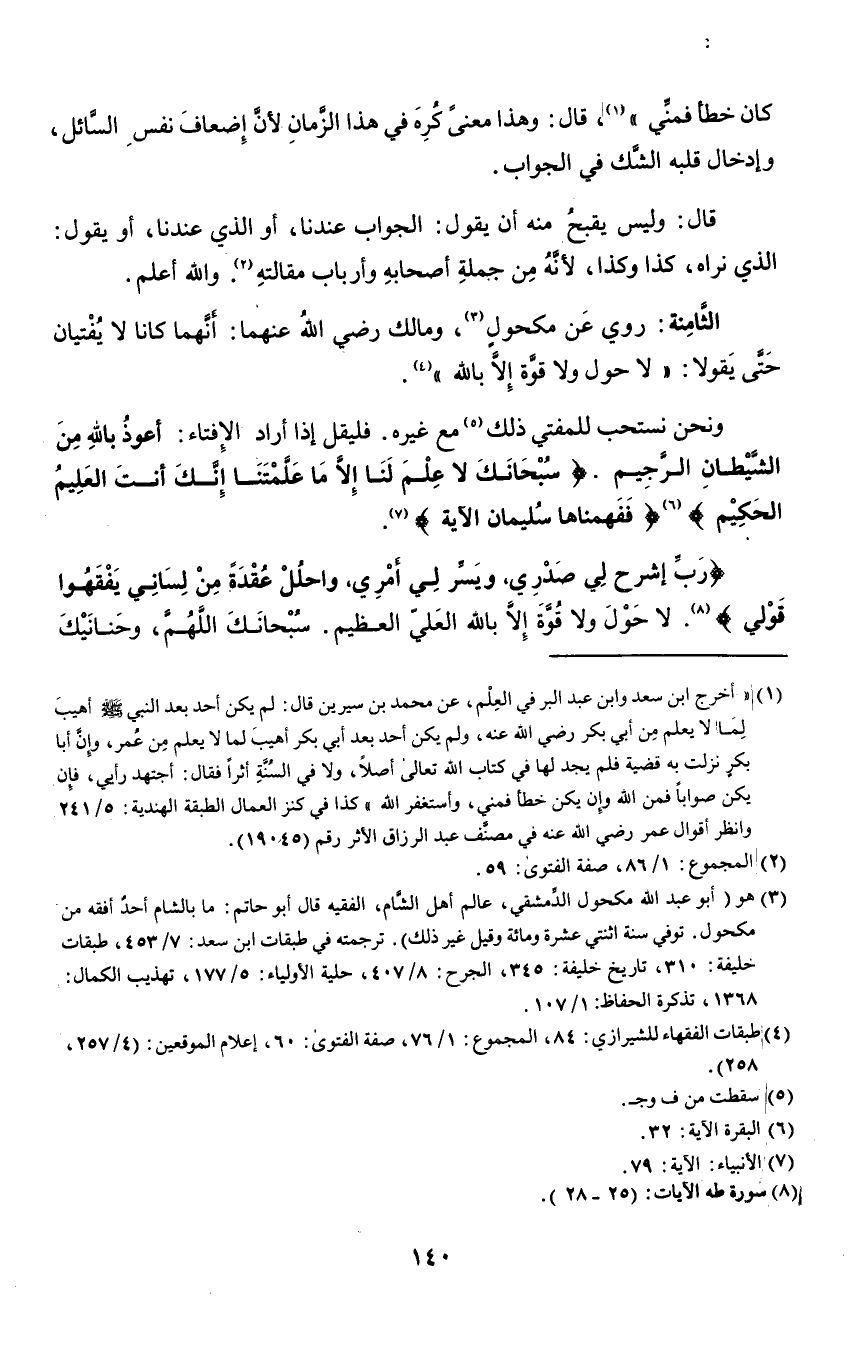 كان خطأ فمنِّي »(١)، قال: وهذا معنىً كُرِهَ في هذا الزَّمانِ لأنَّ إِضعافَ نفس السَّائل،
وإدخال قلبه الشَّك في الجواب.
قال: وليس يقبحُ منه أن يقول: الجواب عندنا، أو الذي عندنا، أو يقول:
الذي نراه، كذا وكذا، لأنَّهُ مِن جملةِ أصحابهِ وأرباب مقالتهِ(٢). والله أعلم.
الثَّامِنة: روي عَن مكحولٍ(٣)، ومالك رضي اللهُ عنهما: أنَّهما كانا لا يُفْتيان
حَتَّى يَقولا: « لا حول ولا قوَّة إلاَّ بالله »(٤).
ونحن نستحب للمفتي ذلك(٥) مع غيره. فليقل إذا أراد الإفتاء: أعوذُ باللهِ مِنَ
الشَّيْطانِ الرَّجيم. ﴿ سُبْحَانَكَ لا عِلْمَ لَنَا إلاَّ مَا عَلَّمْتَنَا إنَّكَ أنتَ العَلِيمُ
الحَكِيْم ﴾(٦) ﴿ فَفَهمناها سُليمان الآية ﴾(٧).
﴿رَبِّ إشرح لِي صَدْرِي، ويَسَّر لِي أَمْرِي، واحلُلْ عُقْدَةً مِنْ لِسَانِي يَفْقَهُوا
قَوْلي ﴾(٨). لا حَوْلَ ولا قُوَّةَ إلاَّ بالله العَليّ العظيم. سُبْحانَكَ اللَّهُمَّ، وحَنانَيْكَ
(١) « أخرج ابن سعد وابن عبد البر في العِلْم، عن محمد بن سيرين قال: لم يكن أحد بعد النبي ﷺ أهيبَ
لِمَا لا يعلم مِن أبي بكر رضي الله عنه، ولم يكن أحد بعد أبي بكر أهيبَ لما لا يعلم مِن عُمر، وإنَّ أبا
بكرٍ نزلت به قضية فلم يجد لها في كتاب الله تعالىٰ أصلاً، ولا في السُنَّةِ أثراً فقال: أجتهد رأيي، فإن
يكن صواباً فمن الله وإن يكن خطأ فمني، وأستغفر الله » كذا في كنز العمال الطبقة الهندية: ٢٤١/٥
وانظر أقوال عمر رضي الله عنه في مصنَّف عبد الرزاق الأثر رقم (١٩٠٤٥).
(٢) المجموع: ٨٦/١، صفة الفتوىٰ: ٥٩.
(٣) هو ( أبو عبد الله مكحول الدِّمشقي، عالم أهل الشَّام، الفقيه قال أبو حاتم: ما بالشام أحدٌ أفقه من
مكحول. توفي سنة اثنتي عشرة ومائة وقيل غير ذلك). ترجمته في طبقات ابن سعد: ٤٥٣/٧، طبقات
خليفة: ٣١٠، تاريخ خليفة: ٣٤٥، الجرح: ٤٠٧/٨، حلية الأولياء: ١٧٧/٥، تهذيب الكمال:
١٣٦٨، تذكرة الحفاظ: ١٠٧/١.
(٤) طبقات الفقهاء للشيرازي: ٨٤، المجموع: ٧٦/١، صفة الفتوىٰ: ٦٠، إعلام الموقعين: (٢٥٧/٤،
٢٥٨).
(٥) سقطت من ف وجـ.
(٦) البقرة الآية: ٣٢.
(٧) الأنبياء: الآية: ٧٩.
(٨) سورة طه الآيات: (٢٥ - ٢٨ ).
١٤٠